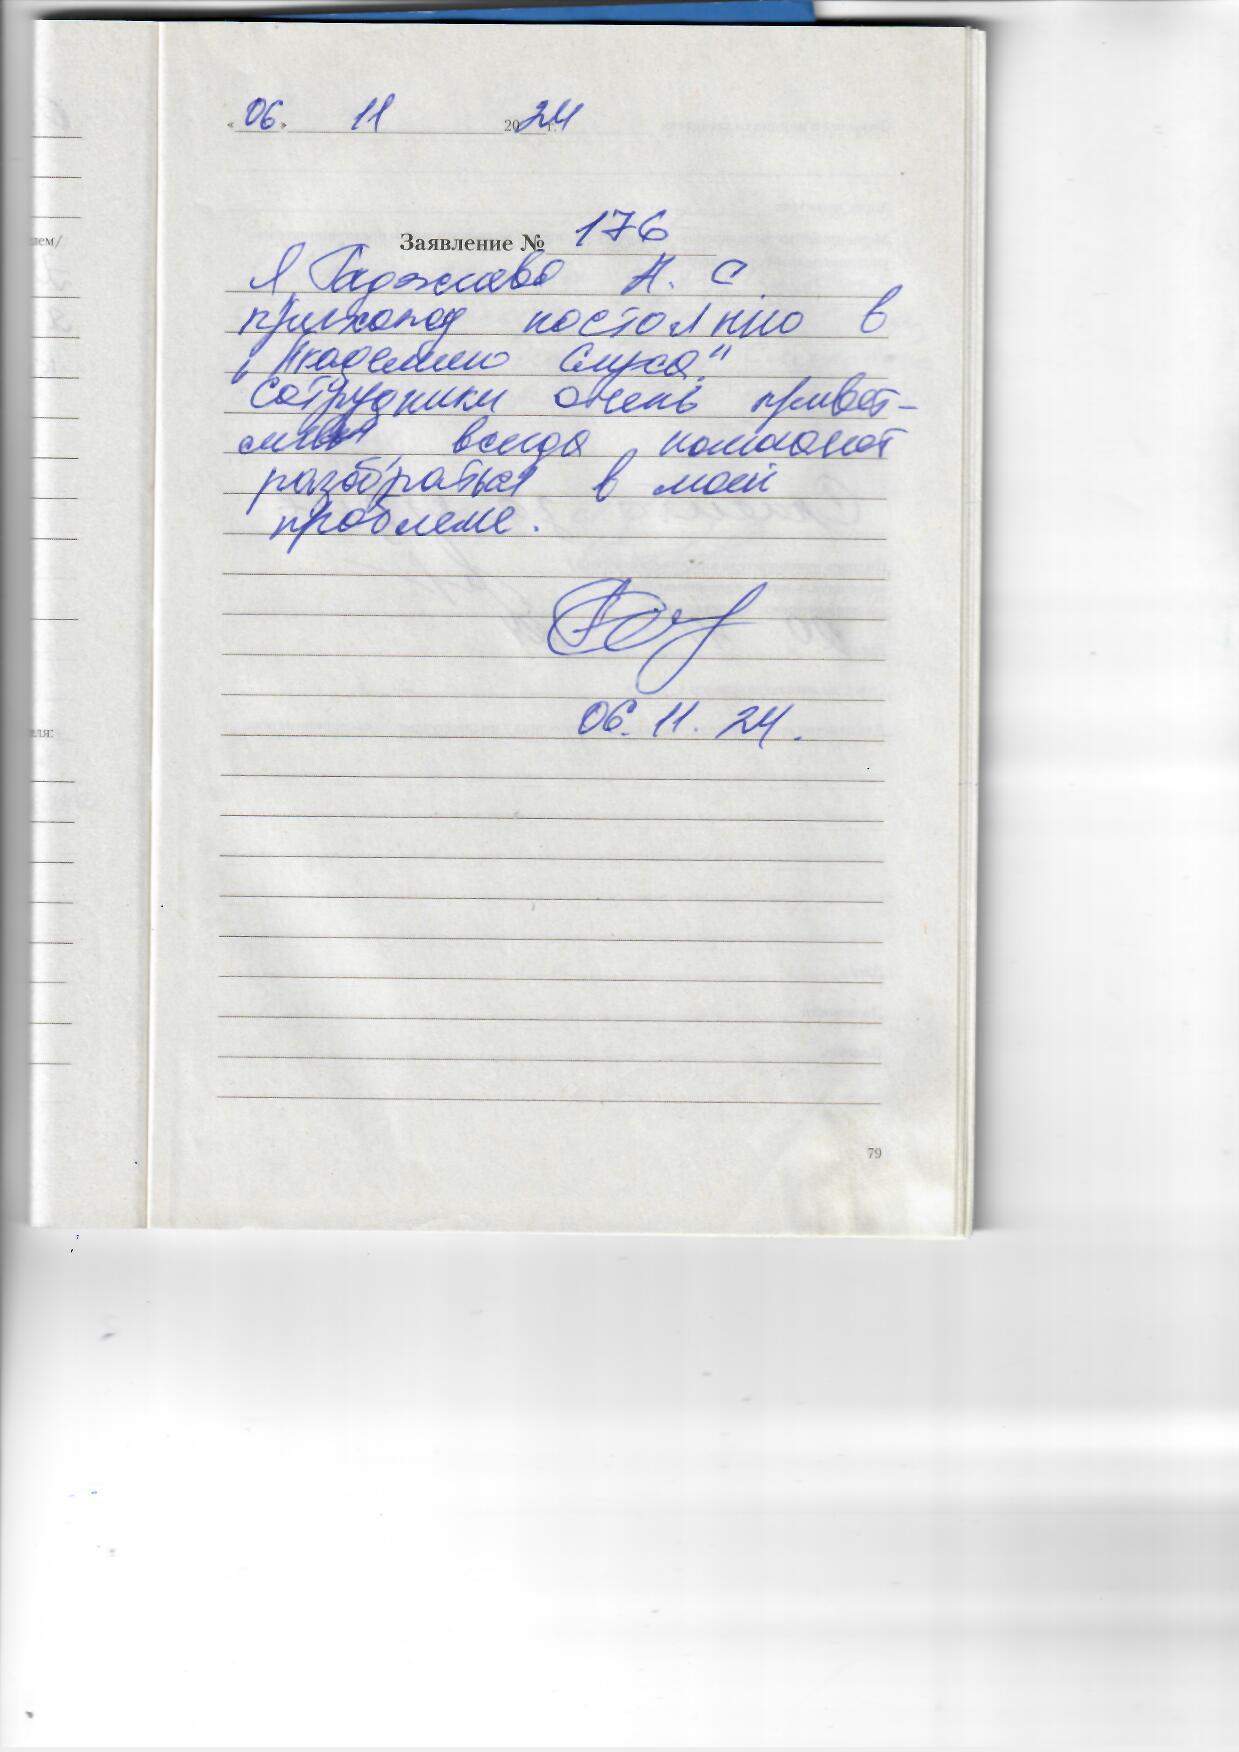 «06» 11 2024 г.
лем/
Заявление № 176
Я, Гаджиева А. С.
прихожу постоянно в
„Академию Слуха"
Сотрудники очень привет-
ливы, всегда помогают
разобраться в моей
проблеме.
06. 11. 24.
еля:
79